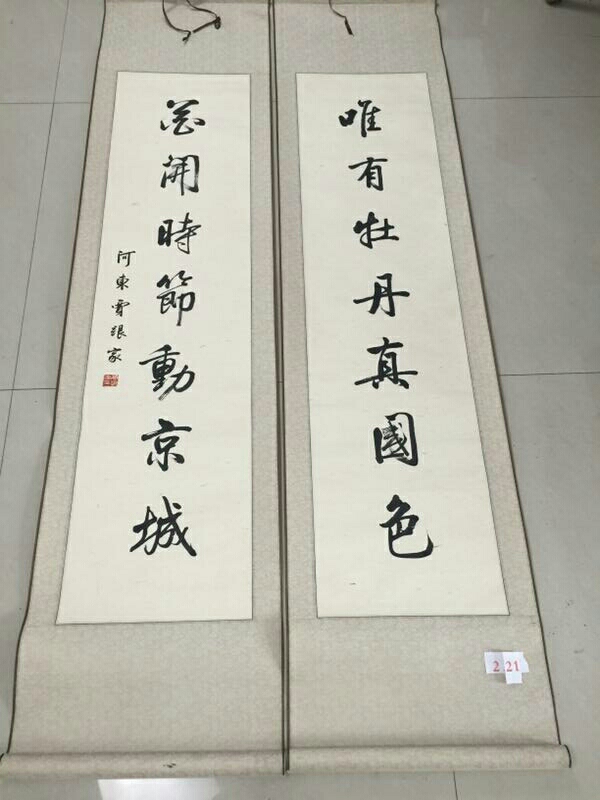 唯有牡丹真國色
花開時節動京城
河東雷銀家
2 21